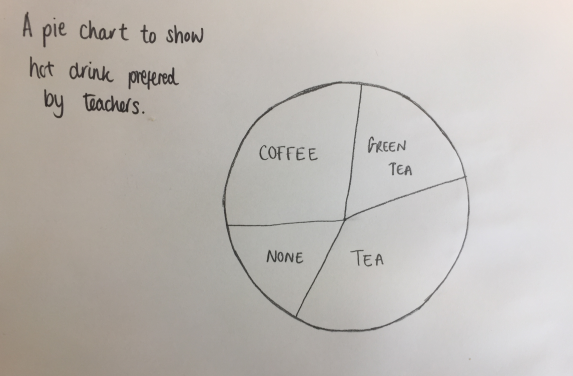 A pie chart to show
hot drink prefered
by teachers.
COFFEE
GREEN
TEA
NONE
TEA